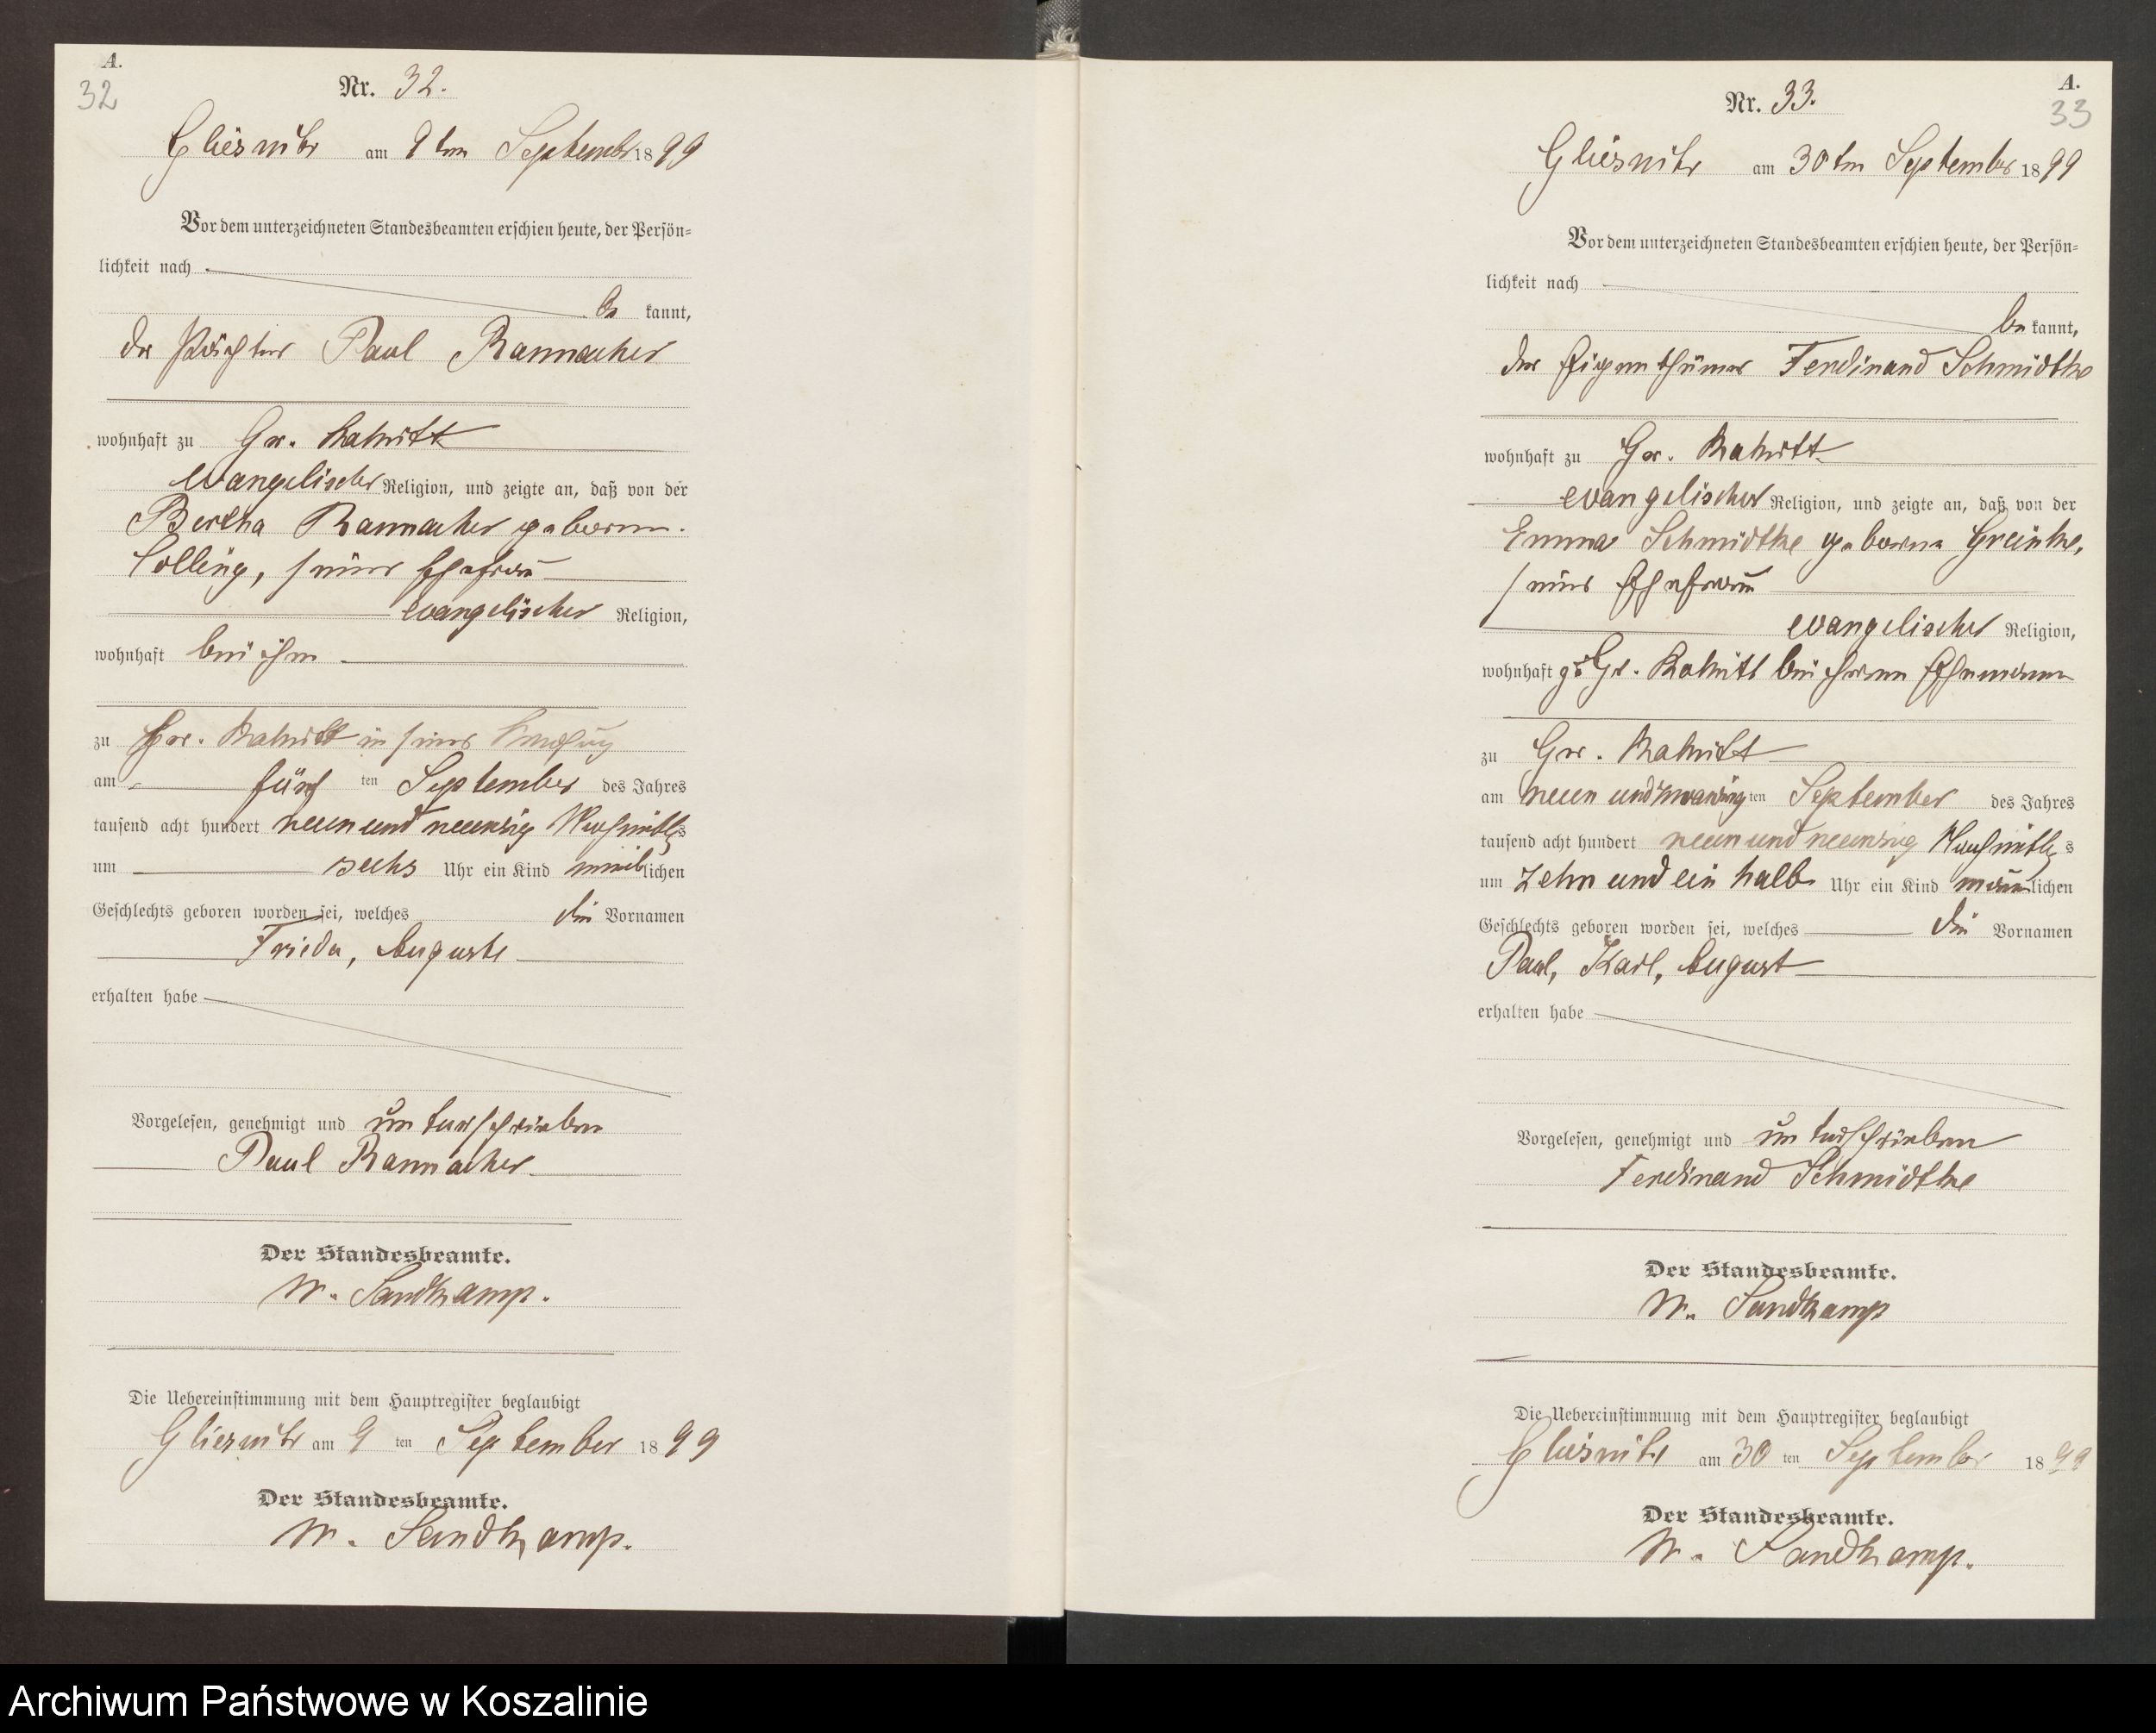 A.
32
Nr. 32.
Gliesnitz am 9ten September 1899
Vor dem unterzeichneten Standesbeamten erschien heute, der Persön=
lichkeit nach
be kannt,
der Pächter Paul Rannacher
wohnhaft zu Gr. Rakitt
evangelischer Religion, und zeigte an, daß von der
Bertha Rannacher geborene
Colling, seiner Ehefrau
evangelischer Religion,
wohnhaft bei ihm
zu Gr. Rakitt in seiner
am fünf ten September des Jahres
tausend acht hundert neun und neunzig Nachmittags
um sechs Uhr ein Kind weiblichen
Geschlechts geboren worden sei, welches die Vornamen
Frieda, Auguste
erhalten habe
Vorgelesen, genehmigt und unterschrieben
Paul Rannacher
Der Standesbeamte.
W. Sandkamp.
Die Uebereinstimmung mit dem Hauptregister beglaubigt
Gliesnitz am 9 ten September 1899
Der Standesbeamte.
W. Sandkamp.
A.
33
Nr. 33.
Gliesnitz am 30ten September 1899
Vor dem unterzeichneten Standesbeamten erschien heute, der Persön=
lichkeit nach
be kannt,
der Eigenthümer Ferdinand Schmidtke
wohnhaft zu Gr. Rakitt
evangelischer Religion, und zeigte an, daß von der
Emma Schmidtke geborne Greinke,
seiner Ehefrau
evangelischer Religion,
wohnhaft zu Gr. Rakitt bei ihrem Ehemann
zu Gr. Rakitt
am neun und zwanzig ten September des Jahres
tausend acht hundert neun und neunzig Nachmittags
um zehn und ein halb Uhr ein Kind männlichen
Geschlechts geboren worden sei, welches die Vornamen
Paul, Karl, August
erhalten habe
Vorgelesen, genehmigt und unterschrieben
Ferdinand Schmidtke
Der Standesbeamte.
W. Sandkamp
Die Uebereinstimmung mit dem Hauptregister beglaubigt
Gliesnitz am 30 ten September 1899
Der Standesbeamte.
W. Sandkamp.
Archiwum Państwowe w Koszalinie